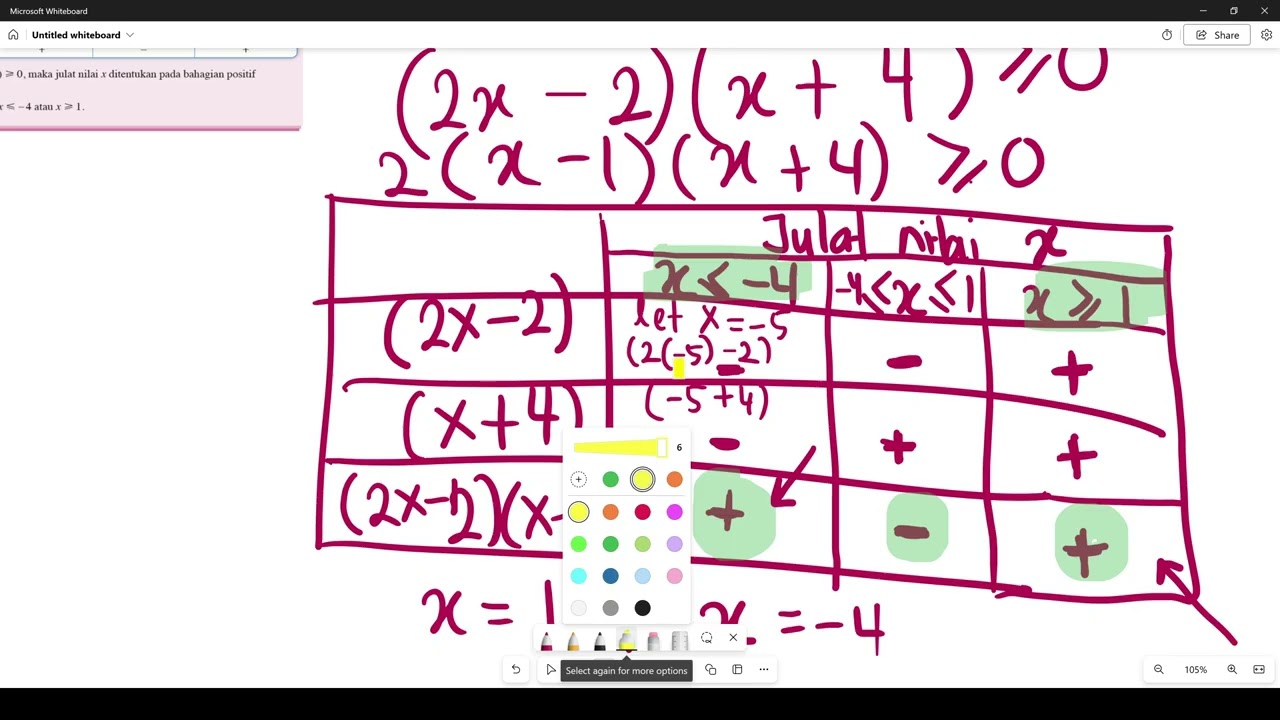 Microsoft Whiteboard
Untitled whiteboard
Share
+ − +
) ⩾ 0, maka julat nilai x ditentukan pada bahagian positif
x ⩽ −4 atau x ⩾ 1.
(2x − 2)(x + 4) ⩾ 0
2(x − 1)(x + 4) ⩾ 0
Julat nilai x
x ⩽ −4
−4 ⩽ x ⩽ 1
x ⩾ 1
(2x−2)
let x = −5
(2(−5) −2)
−
−
+
(x+4)
(−5 +4)
−
+
+
(2x−2)(x
+
−
+
x = 1
x = −4
6
Select again for more options
105%